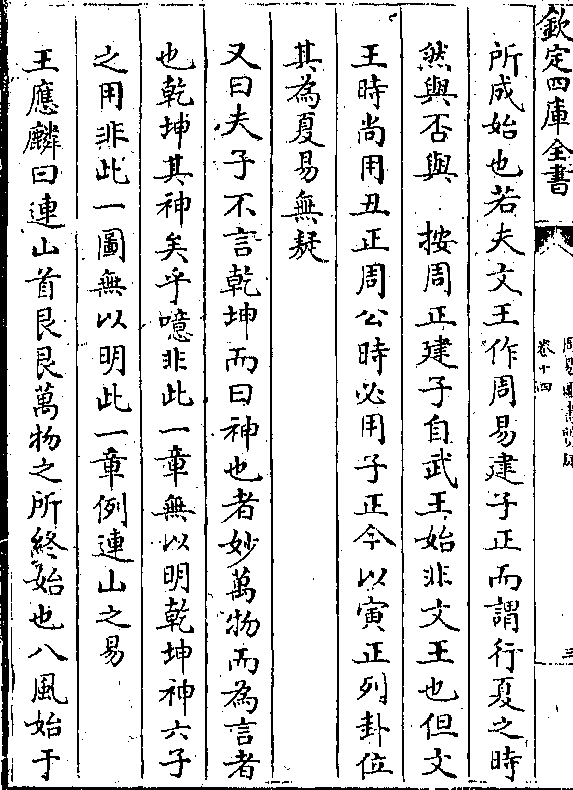 欽定四庫全書
卷十四
三
所成始也若夫文王作周易建子正而謂行夏之時
然與否與 按周正建子自武王始非文王也但文
王時尚用丑正周公時必用子正今以寅正列卦位
其為夏易無疑
又曰夫子不言乾坤而曰神也者妙萬物而為言者
也乾坤其神矣乎噫非此一章無以明乾坤神六子
之用非此一圖無以明此一章例連山之易
王應麟曰連山首艮艮萬物之所終始也八風始于